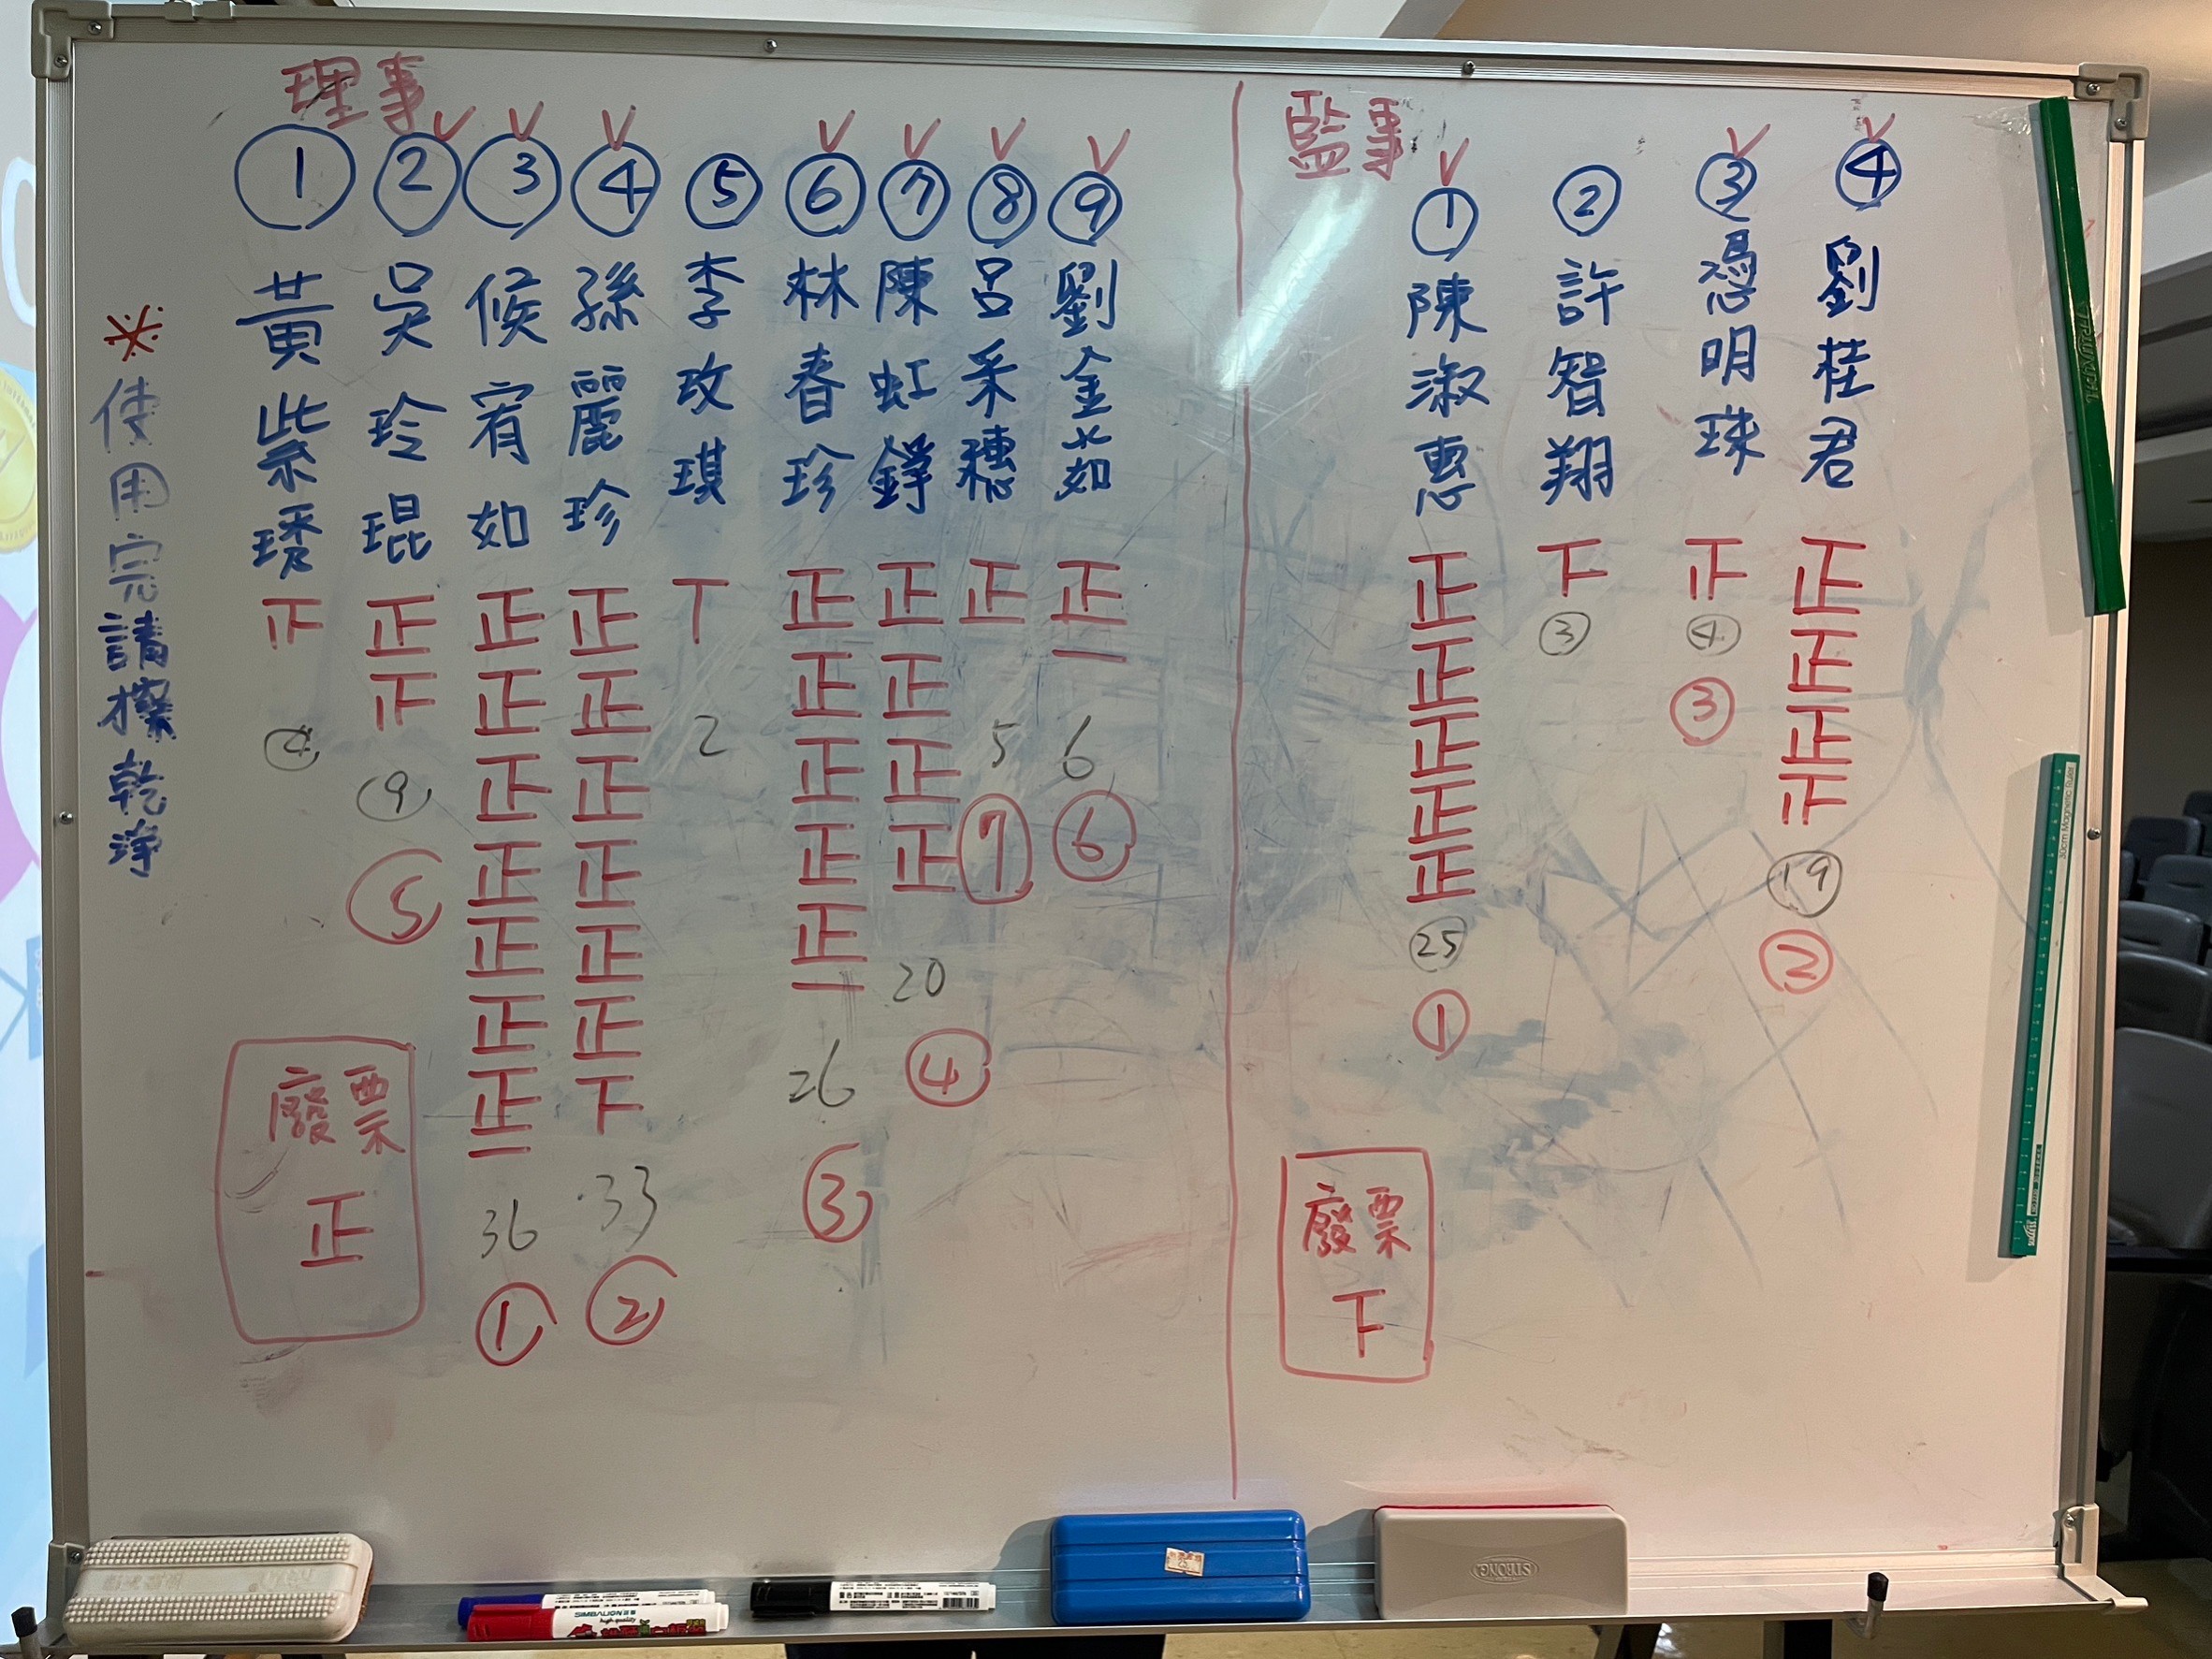 理事
V V V V V V V
① ② ③ ④ ⑤ ⑥ ⑦ ⑧ ⑨
黃紫琇
吳玲琨
候宥如
孫麗珍
李玫琪
林春珍
陳虹錚
呂采穗
劉金茹
正 ④
正正 ⑨ ⑤
正正正正正正正一 36 ①
正正正正正正下 33 ②
T 2
正正正正正一 26 ③
正正正正 20 ④
正 5 ⑦
正一 6 ⑥
廢票
正
監事
V V V
① ② ③ ④
陳淑惠
許智翔
馮明珠
劉桂君
正正正正正 ㉕ ①
下 ③
正 ④ ③
正正正正 ⑲ ②
廢票
下
※使用完請擦乾淨
30cm Magnetic Rules
SIMBALION
high quality
STRONG